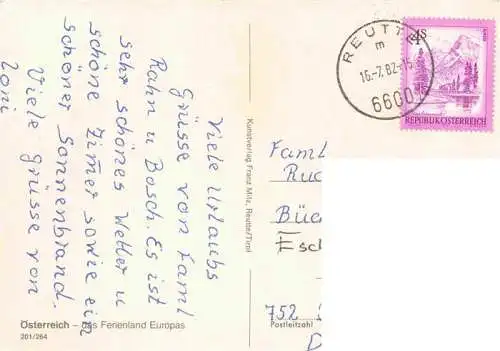 Viele Urlaubs
Grüsse von Faml
Rahn u Bosch. Es ist
sehr schönes Wetter u
schöne Zimer sowie ein
schöner Sonnenbrand.
Viele Grüsse von
Loni
Österreich – das Ferienland Europas
201/264
Kunstverlag Franz Milz, Reutte/Tirol
REUTTE
m
16.-7.82-15
6600
4S
REPUBLIK ÖSTERREICH
Faml
Ruc
Büc
Esch
752
Postleitzahl
D